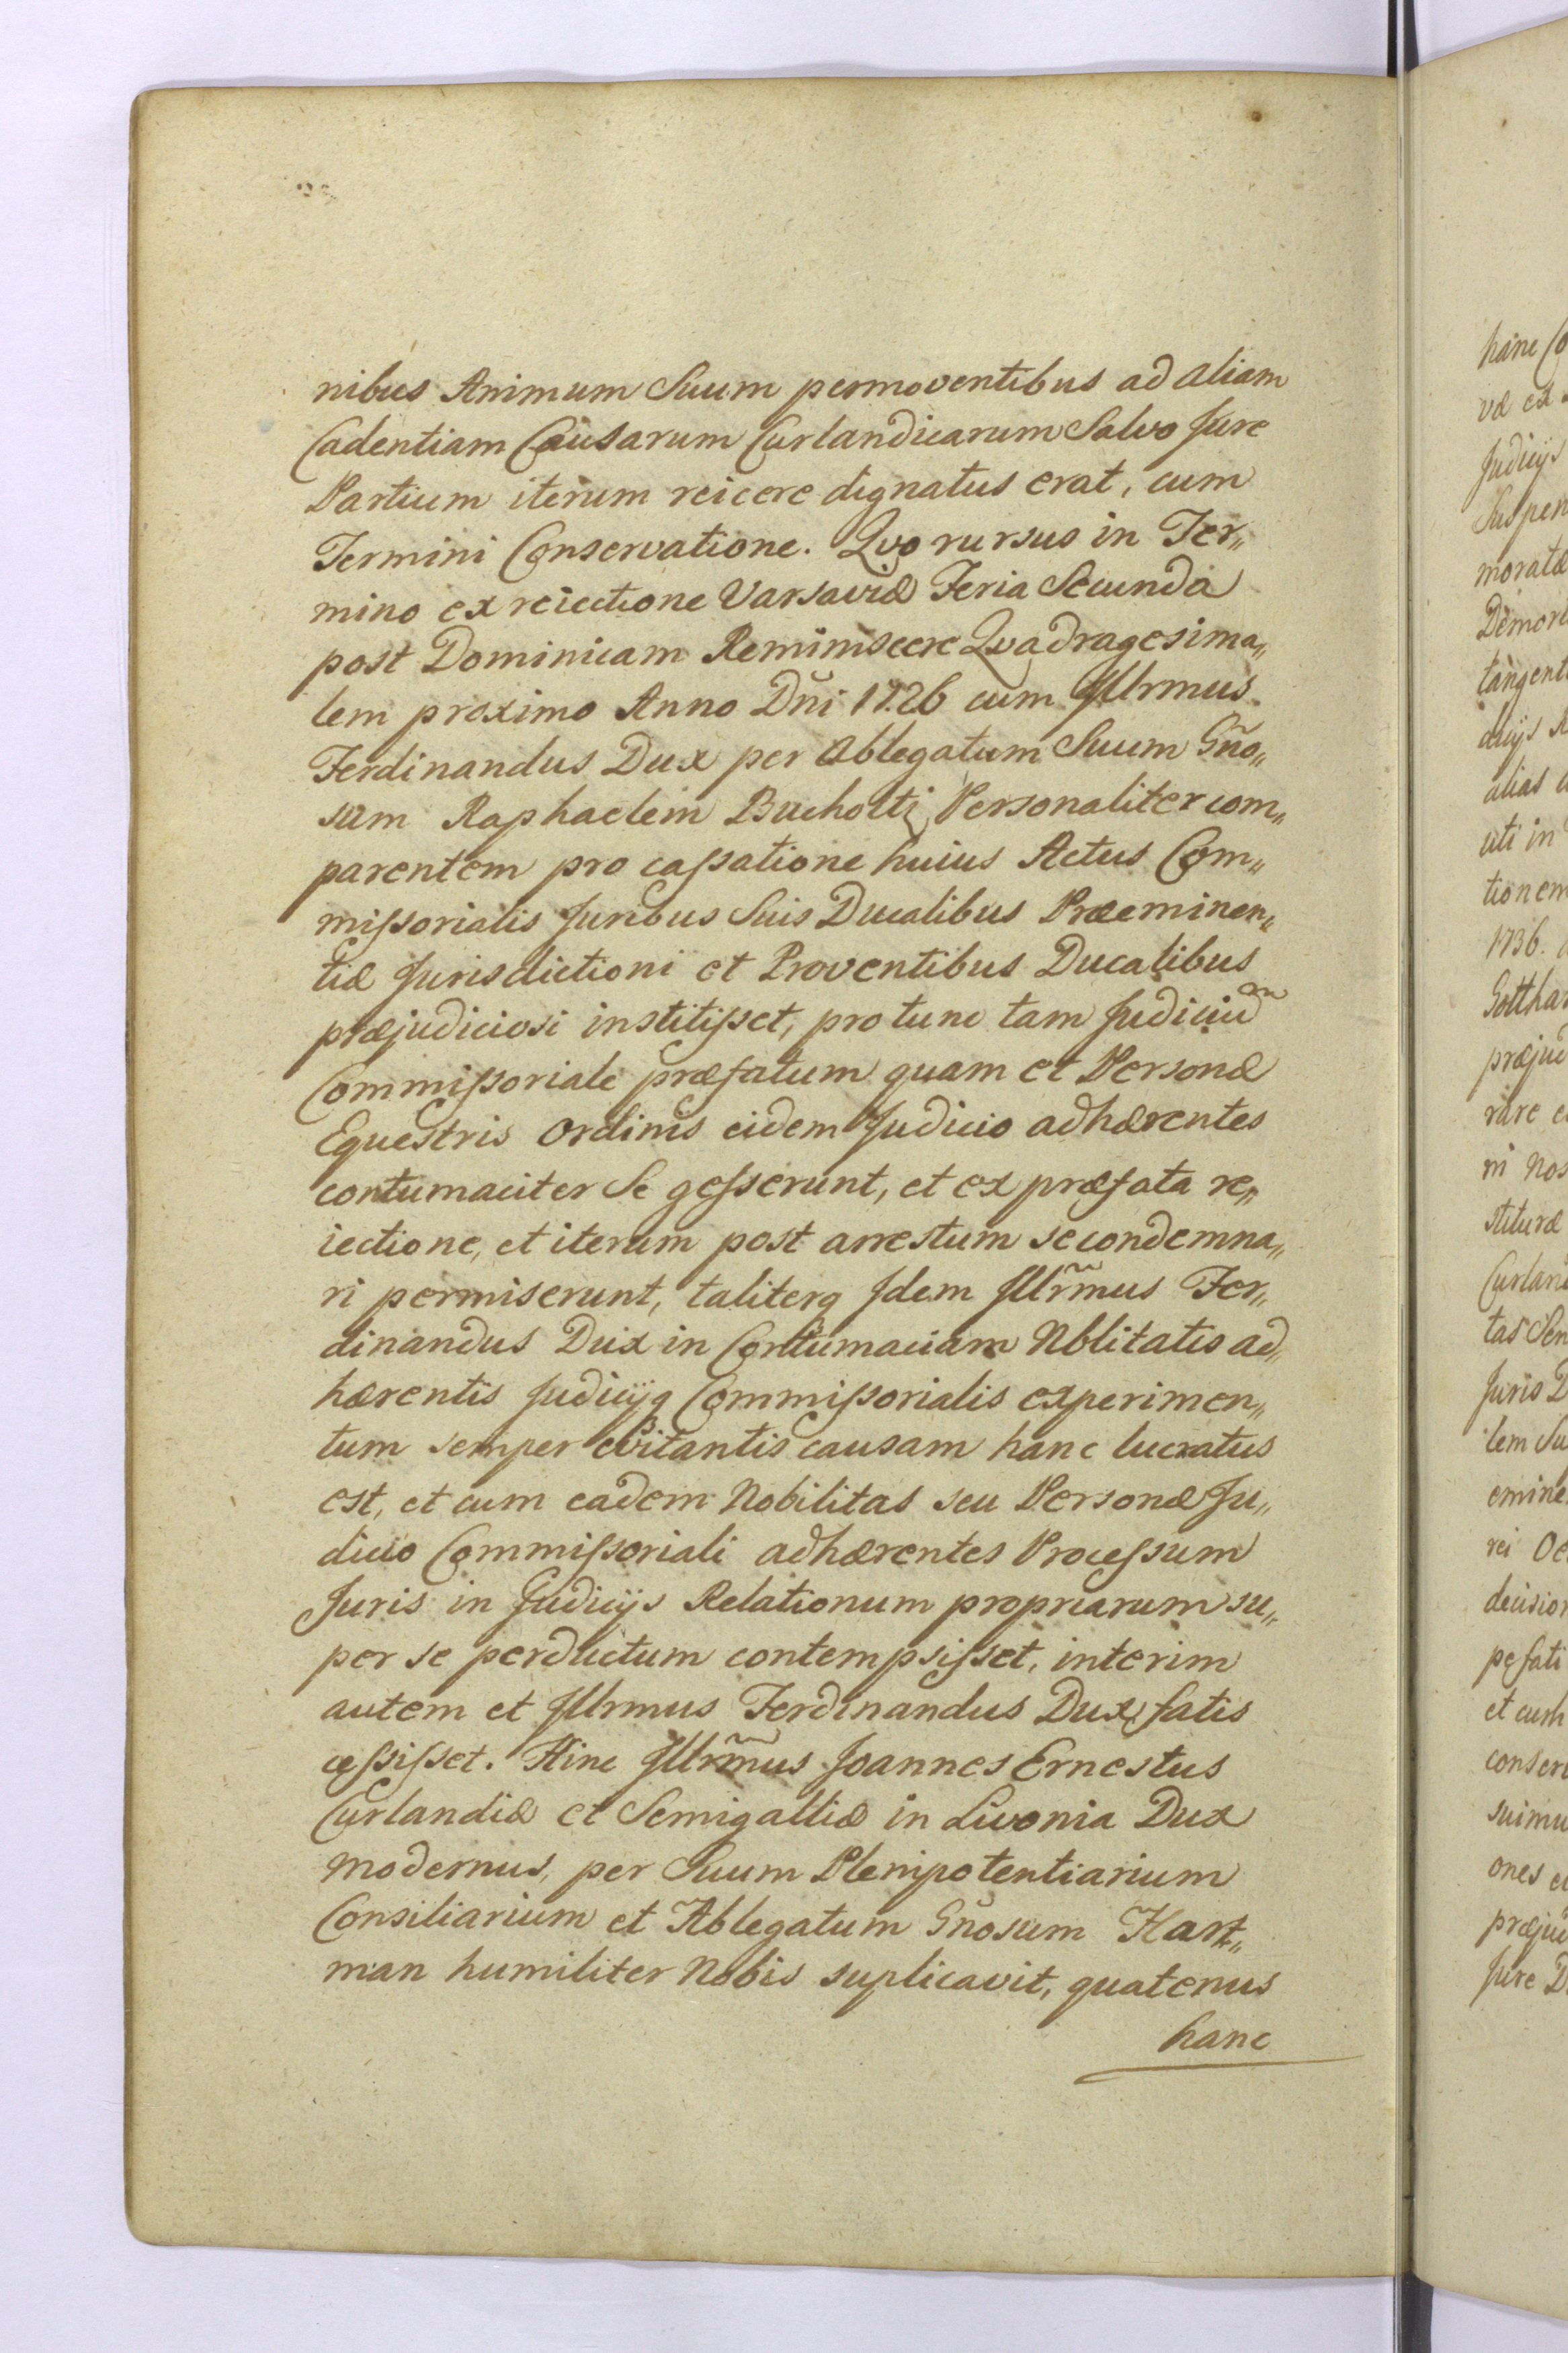 nibus Animum Suum permoventibus ad aliam
Cadentiam Causarum Curlandicarum Salvo Jure
Partium iterum reicere dignatus erat, cum
Termini Conservatione. Qvo rursus in Ter„
mino ex reiectione Varsaviæ Feria Secunda
post Dominicam Reminiscere Qvadragesima„
lem proximo Anno Dñi 1726 cum Jllrmus
Ferdinandus Dux per Ablegatum Suum Gño„
sum Raphaelem Bucholtz Personaliter com„
parentem pro caſsatione huius Actus Com„
miſsorialis Juribus Suis Ducalibus Præeminen„
tiæ Jurisdictioni et Proventibus Ducalibus
præjudiciosi institiſset, pro tunc tam Judiciu͞m
Commiſsoriale præfatum quam et Personæ
Equestris Ordinis eidem Judicio adhærentes
contumaciter Se geſserunt, et ex præfata re„
iectione, et iterum post arrestum se condemna„
ri permiserunt, taliterq Jdem Jllr̃mus Fer„
dinandus Dux in Contumaciam Nblitatis ad„
hærentis Judicijq Commiſsorialis experimen„
tum semper evitantis causam hanc lucratus
est, et cum eadem Nobilitas seu Personæ Ju„
dicio Commiſsoriali adhærentes Proceſsum
Juris in Judicijs Relationum propriarum su„
per se perductum contempsiſset, interim
autem et Jllrmus Ferdinandus Dux fatis
ceſsiſset. Hinc Jllrm̃us Joannes Ernestus
Curlandiæ et Semigalliæ in Livonia Dux
modernus, per Suum Plenipotentiarium
Consiliarium et Ablegatum Gñosum Hart„
man humiliter Nobis suplicavit, quatenus
hanc
hanc
væ ex
Judicijs
Suspen
moratæ
Demori
tangent
dicijs
alias
uti in
tionem
1736.
Gotthar
præjud
rare
ni Nos
stituræ
Curland
tas Sen
Juris D
lem Su
emine
rei
decision
pefati
et cum
conser
suimu
ones
præjud
Jure D